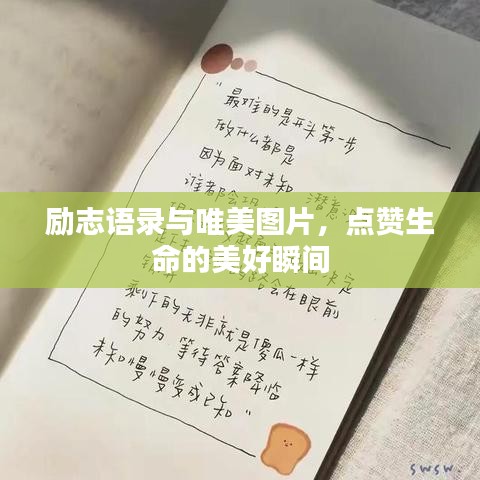 "最难的是开头第一步
做什么都是
因为面对未知
谁都会 潜意
励志语录与唯美图片，点赞生
命的美好瞬间
决定
会在眼前
剩下的无非就是傻瓜一样
的努力 等待答案降临
未知慢慢变成已知"
swsw.